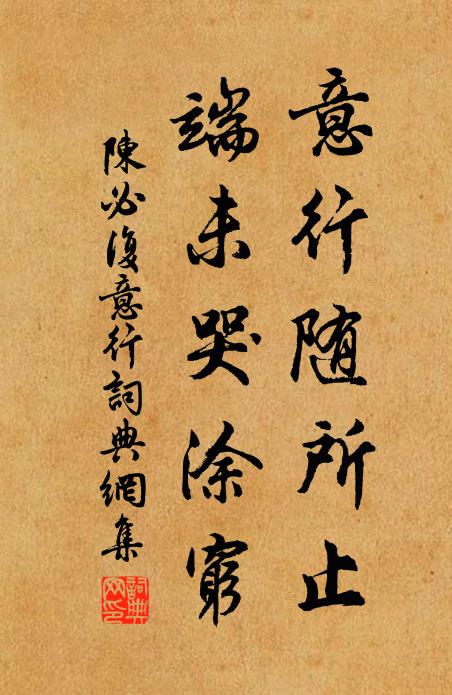 意行随所止
端未哭涂窮
陳必復意行詞典網集
詞典網印